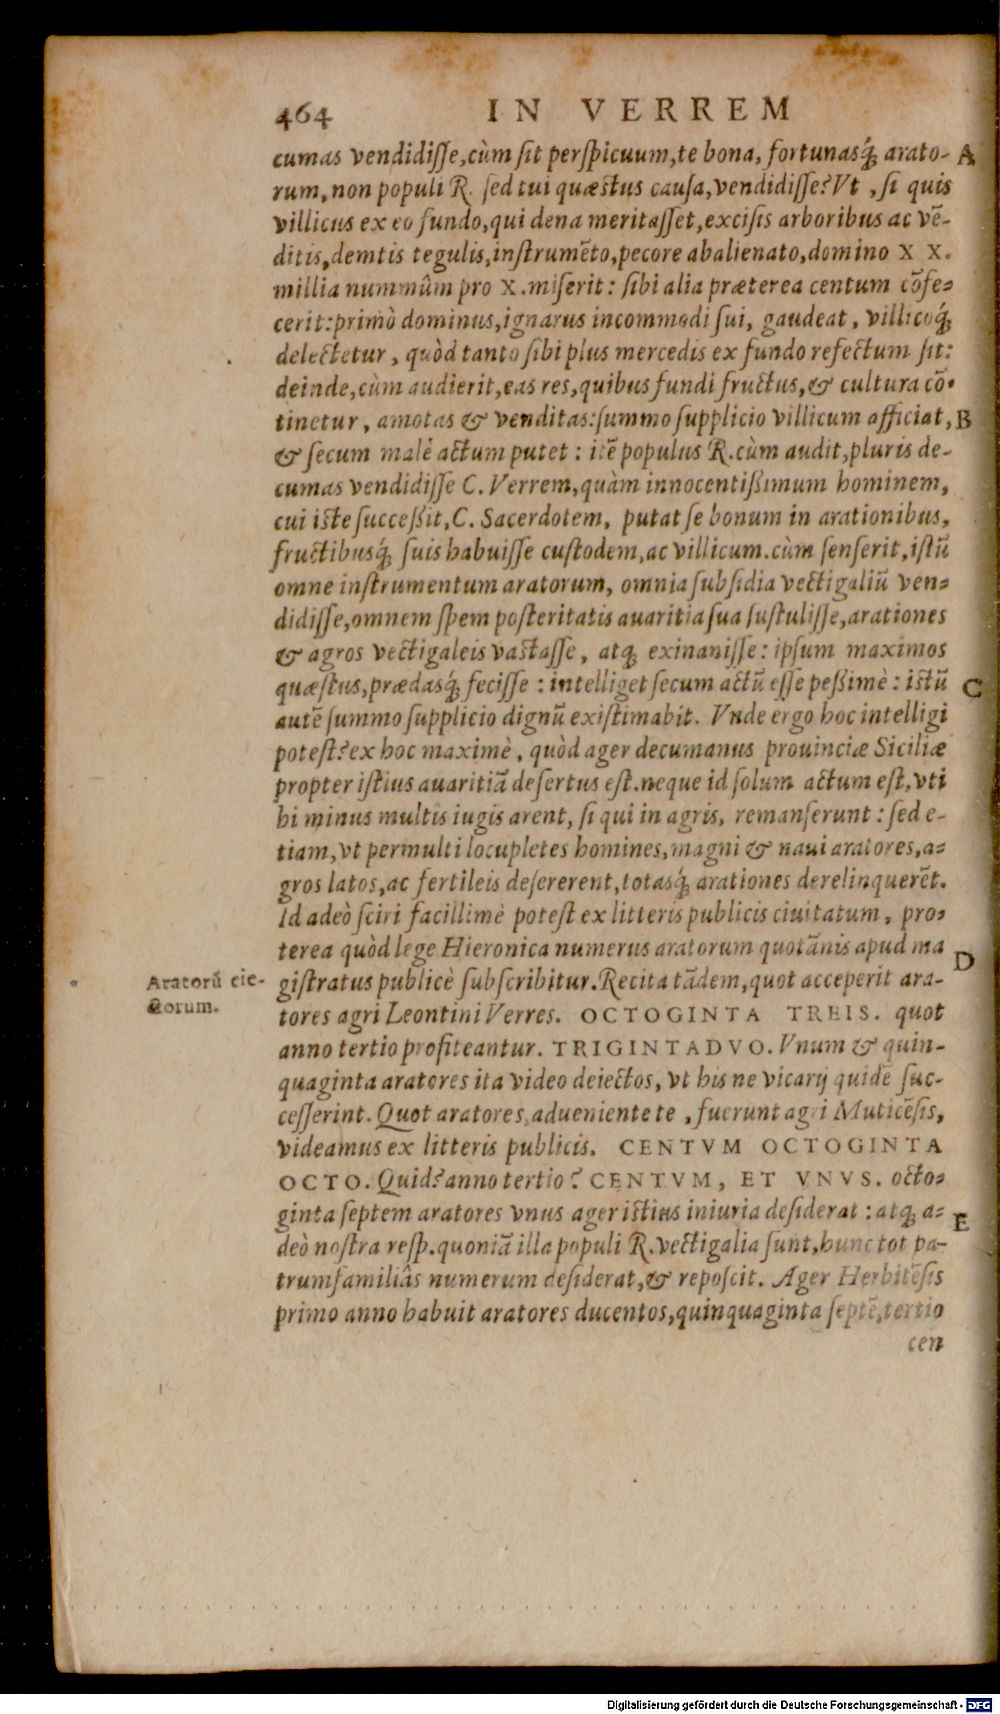 464 IN VERREM
cumas vendidiſſe,cùm ſit perſpicuum,te bona, fortunasq́; arato- A
rum, non populi R. ſed tui quæstus cauſa,vendidiſſe? Vt , ſi quis
villicus ex eo fundo,qui dena meritaſſet,exciſis arboribus ac vē-
ditis,demtis tegulis,inſtrumēto,pecore abalienato,domino X X.
millia nummûm pro X.miſerit: ſibi alia præterea centum cōfe-
cerit:primò dominus,ignarus incommodi ſui, gaudeat, villicoq́;
delectetur, quòd tanto ſibi plus mercedis ex fundo refectum ſit:
deinde,cùm audierit,eas res,quibus fundi fructus,& cultura cō-
tinetur, amotas & venditas:ſummo ſupplicio villicum afficiat, B
& ſecum malè actum putet: itē populus R.cùm audit,pluris de-
cumas vendidiſſe C. Verrem,quàm innocentißimum hominem,
cui iste ſucceßit,C. Sacerdotem, putat ſe bonum in arationibus,
fructibusq́; ſuis habuiſſe custodem,ac villicum.cùm ſenſerit,iſtū
omne inſtrumentum aratorum, omnia ſubſidia vectigaliū ven-
didiſſe,omnem ſpem poſteritatis auaritia ſua ſuſtuliſſe,arationes
& agros vectigaleis vaſtaſſe, atq; exinaniſſe: ipſum maximos
quæſtus,prædasq́; feciſſe: intelliget ſecum actū eſſe peßimè: istū C
autē ſummo ſupplicio dignū existimabit. Vnde ergo hoc intelligi
poteſt? ex hoc maximè, quòd ager decumanus prouinciæ Siciliæ
propter iſtius auaritiā deſertus eſt.neque id ſolum actum eſt,vti
hi minus multis iugis arent, ſi qui in agris, remanſerunt: ſed e-
tiam,vt permulti locupletes homines,magni & naui aratores,a-
gros latos,ac fertileis deſererent,totasq́; arationes derelinquerēt.
Id adeò ſciri facillimè poteſt ex litteris publicis ciuitatum, pro-
terea quòd lege Hieronica numerus aratorum quotānis apud ma D
Aratorū eie- giſtratus publicè ſubſcribitur.Recita tādem,quot acceperit ara-
ctorum. tores agri Leontini Verres. OCTOGINTA TREIS. quot
anno tertio profiteantur. TRIGINTADVO. Vnum & quin-
quaginta aratores ita video deiectos, vt his ne vicarij quidē ſuc-
ceſſerint. Quot aratores,adueniente te, fuerunt agri Muticēſis,
videamus ex litteris publicis. CENTVM OCTOGINTA
OCTO. Quid? anno tertio? CENTVM, ET VNVS. octo-
ginta ſeptem aratores vnus ager istius iniuria deſiderat: atq; a- E
deò noſtra reſp.quoniā illa populi R.vectigalia ſunt,hunc tot pa-
trumfamiliâs numerum deſiderat,& repoſcit. Ager Herbitēſis
primo anno habuit aratores ducentos,quinquaginta ſeptē,tertio
cen
Digitalisierung gefördert durch die Deutsche Forschungsgemeinschaft - DFG